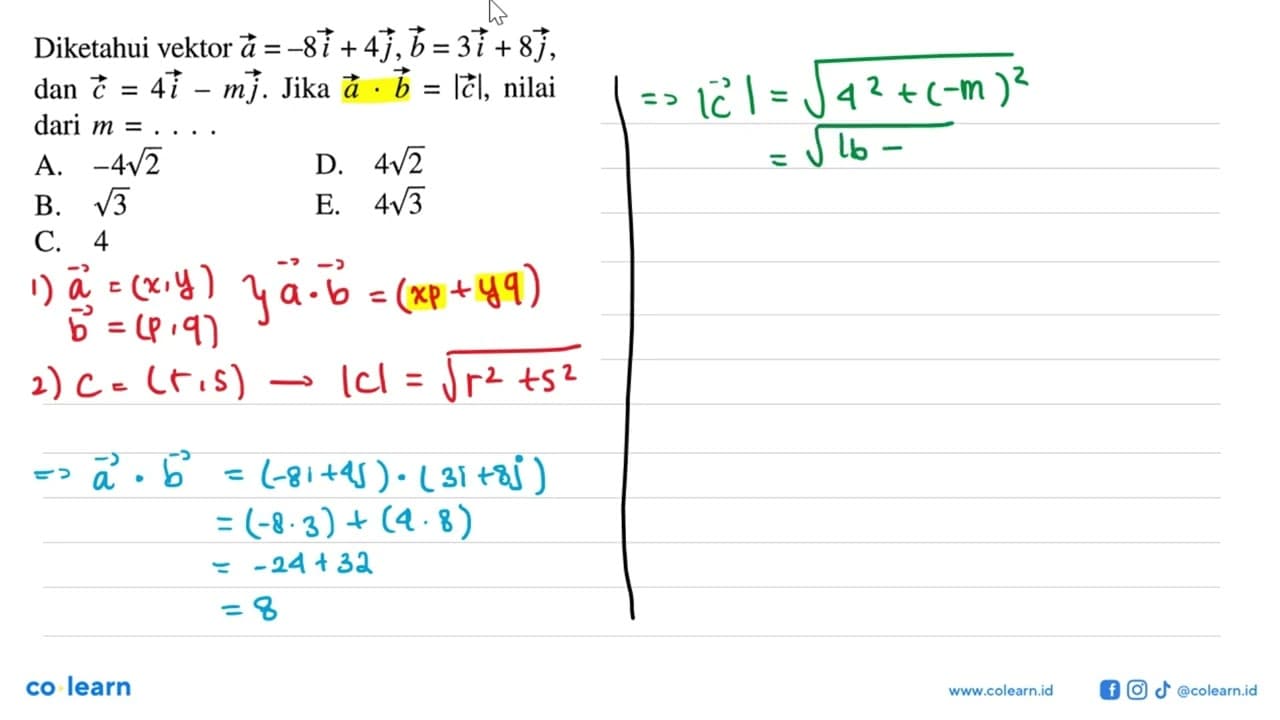 Diketahui vektor a⃗ = –8i⃗ + 4j⃗, b⃗ = 3i⃗ + 8j⃗,
dan c⃗ = 4i⃗ – mj⃗. Jika a⃗ · b⃗ = |c⃗|, nilai
dari m = . . . .
A. –4√2
D. 4√2
B. √3
E. 4√3
C. 4
1) a⃗ = (x,y) } a⃗ · b⃗ = (xp + yq)
b⃗ = (p,q)
2) C = (r,s) → |c| = √r² + s²
=> a⃗ · b⃗ = (-8i+4j) · (3i+8j)
= (-8·3) + (4·8)
= -24 + 32
= 8
=> |c⃗| = √4² + (-m)²
= √16 -
co learn
www.colearn.id
@colearn.id